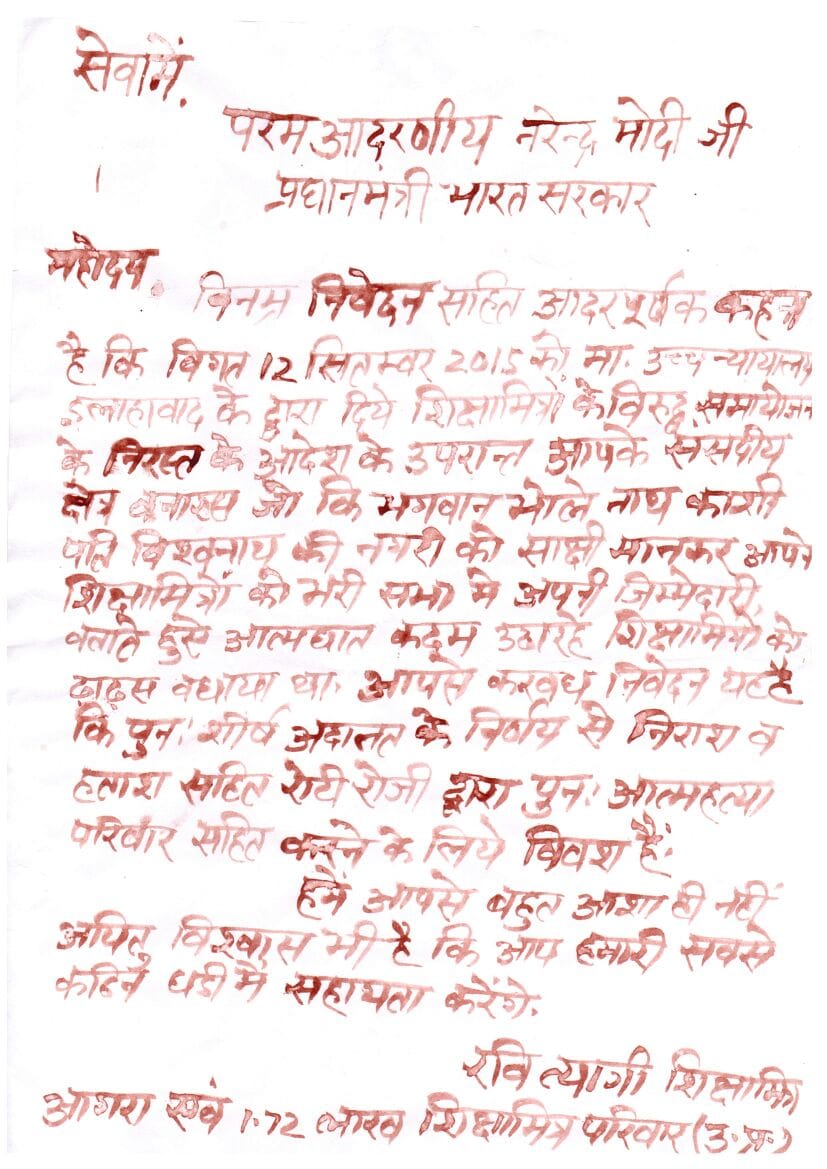 सेवामें,
परम आदरणीय नरेन्द्र मोदी जी
प्रधानमंत्री भारत सरकार
महोदय,
विनम्र निवेदन सहित आदरपूर्षक कहना
है कि विगत 12 सितम्बर 2015 को मा. उच्च न्यायालय
इलाहावाद के द्वारा दिये शिक्षामित्रों के विरुद्ध समायोजन
के निरस्त के आदेश के उपरान्त आपके संसदीय
क्षेत्र बनारस जो कि भगवान भोले नाथ काशी
पति विश्वनाथ की नगरी को साक्षी मानकर आपने
शिक्षामित्रों को भरी सभा मे अपनी जिम्मेदारी,
वताते हुसे आत्मघात कदम उठारहे शिक्षामित्रो को
ढ़ाढ़स वधाया था. आपसे करवध निवेदन यह है
कि पुन: शीर्ष अदालत के निर्णय से निराश व
हताश सहित रोटी रोजी द्वारा पुन: आत्महत्या
परिवार सहित करने के लिये विवश हैं:
हमें आपसे बहुत आशा ही नहीं
अपितु विश्वास भी है कि आप हमारी सबसे
कठिन घडी मे सहायता करेंगे.
रवि त्यागी शिक्षामित्र
आगरा एवं 1.72 लाख शिक्षामित्र परिवार (उ.प्र.)